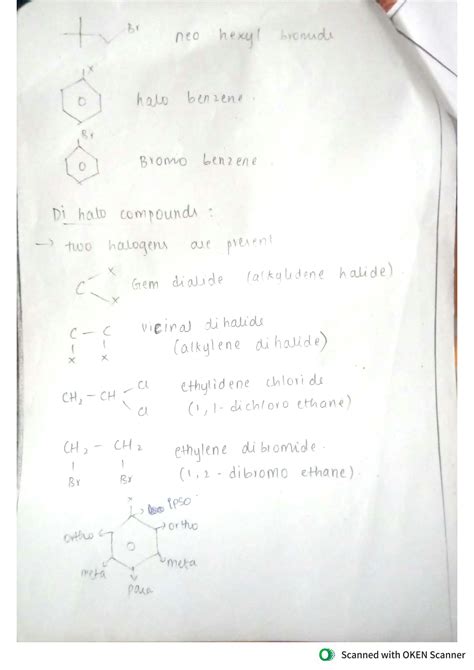 Br neo hexyl bromide
X
halo benzene.
Br
Bromo benzene.
Di halo compounds :
→ two halogens are present
C X X Gem dialide (alkylidene halide).
C - C vicinal dihalide
X X (alkylene dihalide)
CH3 - CH Cl ethylidene chloride
Cl (1,1-dichloro ethane)
CH2 - CH2 ethylene dibromide.
Br Br (1,2 - dibromo ethane).
X
ipso
ortho ortho
meta meta
para
Scanned with OKEN Scanner